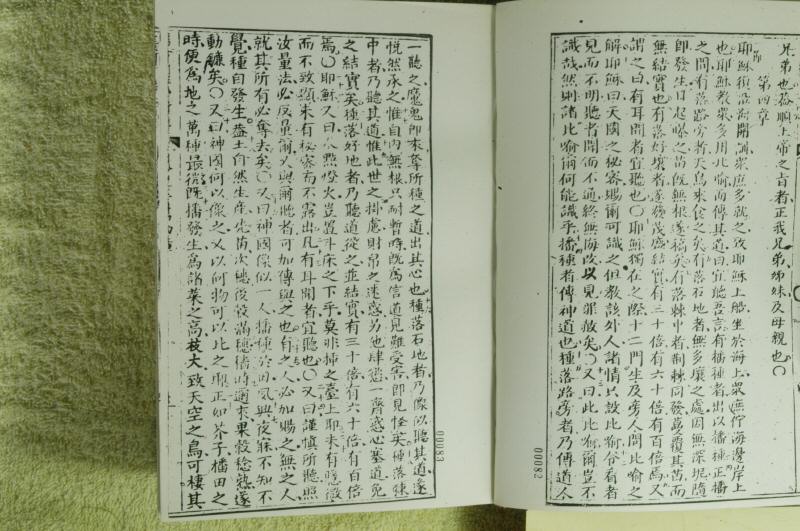 兄弟也蓋順上帝之旨者正我兄弟姊妹及母親也〇
第四章
耶穌復沿海開講眾庶多就之致耶穌上船坐於海上眾庶佇海邊岸上
也耶穌教眾多用比喻而傳其道曰宜聽吾言有播種者出以播種正播
之間有落路旁者天鳥來食之矣有落石地者無多壤之處因無深坭隨
即發生日起曝之苗既無根遂槁矣有落棘中者荊棘同發蔦覆其苗而
無結實也有落好壤者遂發茂盛結實有三十倍有六十倍有百倍焉又
謂之曰有耳聞者宜聽也〇耶穌獨在之際十二門生及旁人問比喻之
解耶穌曰天國之秘密賜爾可識之但教該外人諸情只設比喻令看者
見而不明聽者聞而不通終無悔改以見罪赦矣〇又曰此比喻爾豈不
識哉然則諸比喻爾何能識乎播種者傳神道也種落路旁者乃傳道人
00082
一聽之魔鬼即來奪所種之道出其心也種落石地者乃像似聽其道遂
悅然承之惟自內無根只耐暫時既為信道見難受害即見怪矣種落棘
中者乃聽其道惟此世之掛慮財帛之迷惑另他肆慾一齊惑心塞道免
之結實矣種落好地者乃聽道從之並結實有三十倍有六十倍有百倍
焉〇耶穌又曰人點燈火豈置斗床之下乎莫非擡之臺上耶未有隱微
而不致顯未有秘密而不露出凡有耳聞者宜聽也〇又曰謹慎所聽照
汝量法必反量爾又與爾聽者可加傳與之也有之人必加賜之無之人
就其所有必奪去矣〇又曰神國像似一人播種於田夙興夜寐不知不
覺種自發生蓋土自然生產先苗次穗後穀滿穗禱時適來果穀稔熟遂
動鐮矣〇又曰神國何以像之又以何物可以比之耶正如芥子播田之
時便為地之萬種最微既播發生為諸菜之高枝大致天空之鳥可棲其
00083